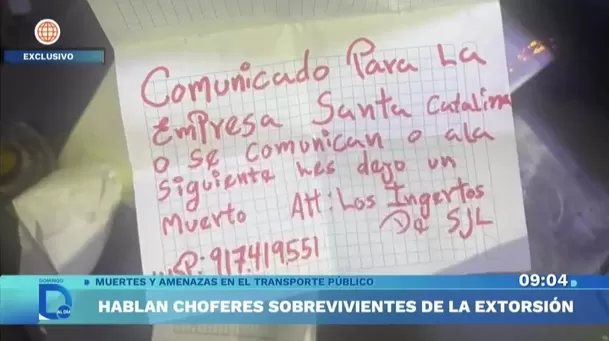 EXCLUSIVO
Comunicado Para La
EmPresa Santa Catalina
o se comunican o ala
siguiente les dejo un
Muerto Att: Los Ingertos
De SJL
WSP: 917419551
MUERTES Y AMENAZAS EN EL TRANSPORTE PÚBLICO
09:04
DOMINGO
AL DÍA
HABLAN CHOFERES SOBREVIVIENTES DE LA EXTORSIÓN